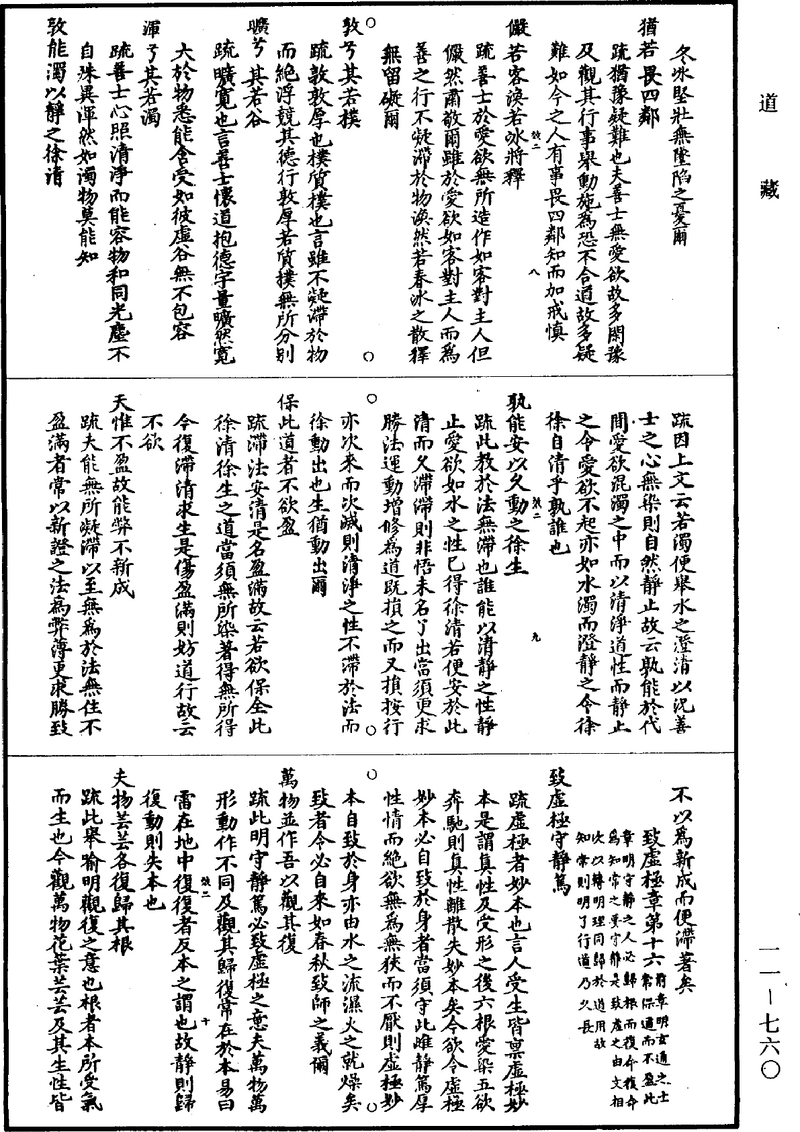 道藏
冬冰堅壯無墮陷之憂爾
猶若畏四鄰
疏猶豫疑難也夫善士無愛欲故多閑豫
及觀其行事舉動施為恐不合道故多疑
難如今之人有事畏四鄰知而加戒慎
儼若客渙若冰將釋
疏善士於愛欲無所造作如客對主人但
儼然肅敬爾雖於愛欲如客對主人而為
善之行不凝滯於物渙然若春冰之散釋
無留礙爾
敦兮其若樸
疏敦敦厚也樸質樸也言雖不凝滯於物
而絕浮競其德行敦厚若質樸無所分別
曠兮其若谷
疏曠寬也言善士懷道抱德字量曠然寬
大於物悉能含受如彼虛谷無不包容
渾兮其若濁
疏善士心照清淨而能容物和同光塵不
自殊異渾然如濁物莫能知
孰能濁以靜之徐清
疏因上文云若濁便舉水之澄清以況善
士之心無染則自然靜止故云孰能於代
間愛欲混濁之中而以清淨道性而靜止
之令愛欲不起亦如水濁而澄靜之令徐
徐自清乎孰誰也
孰能安以久動之徐生
疏此教於法無滯也誰能以清靜之性靜
止愛欲如水之性已得徐清若便安於此
清而久滯滯則非悟未名了出當須更求
勝法運動增修為道既損之而又損按行
亦次來而次滅則清淨之性不滯於法而
徐動出也生猶動出爾
保此道者不欲盈
疏滯法安清是名盈滿故云若欲保全此
徐清徐生之道當須無所染著得無所得
今復滯清求生是傷盈滿則妨道行故云
不欲
夫惟不盈故能弊不新成
疏夫能無所凝滯以至無為於法無住不
盈滿者常以新證之法為弊薄更求勝致
不以為新成而便滯著矣
致虛極章第十六 前章明玄通之士常保道而不盈此
章明守靜之人必歸根而復命復命
為知常之要守靜是致虛之由文相
次以轉明理同歸於道用故
知常則明了行道乃久長
致虛極守靜篤
疏虛極者妙本也言人受生皆稟虛極妙
本是謂真性及受形之後六根愛染五欲
奔馳則真性離散失妙本矣今欲令虛極
妙本必自致於身者當須守此雌靜篤厚
性情而絕欲無為無狹而不厭則虛極妙
本自致於身亦由水之流濕火之就燥矣
致者令必自來如春秋致師之義爾
萬物並作吾以觀其復
疏此明守靜篤必致虛極之意夫萬物萬
形動作不同及觀其歸復常在於本易曰
雷在地中復復者反本之謂也故靜則歸
復動則失本也
夫物芸芸各復歸其根
疏此舉喻明觀復之意也根者本所受氣
而生也今觀萬物花葉芸芸及其生性皆
一一—七六〇